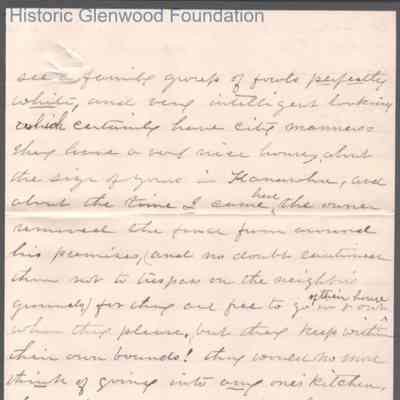 Historic Glenwood Foundation
see a family group of fowls perfectly
white, and very intelligent looking
which certainly have city manners
They have a very nice house, about
the size of yours in and
about the time I came here, the owner
removed the fence from around
his premises, (and no doubt cautioned
them not to trespass on the neighbor's
grounds) for they are free to go in & out of their house
when they please, but they keep within
their own bounds! they would no more
think of going into any one's kitchen,